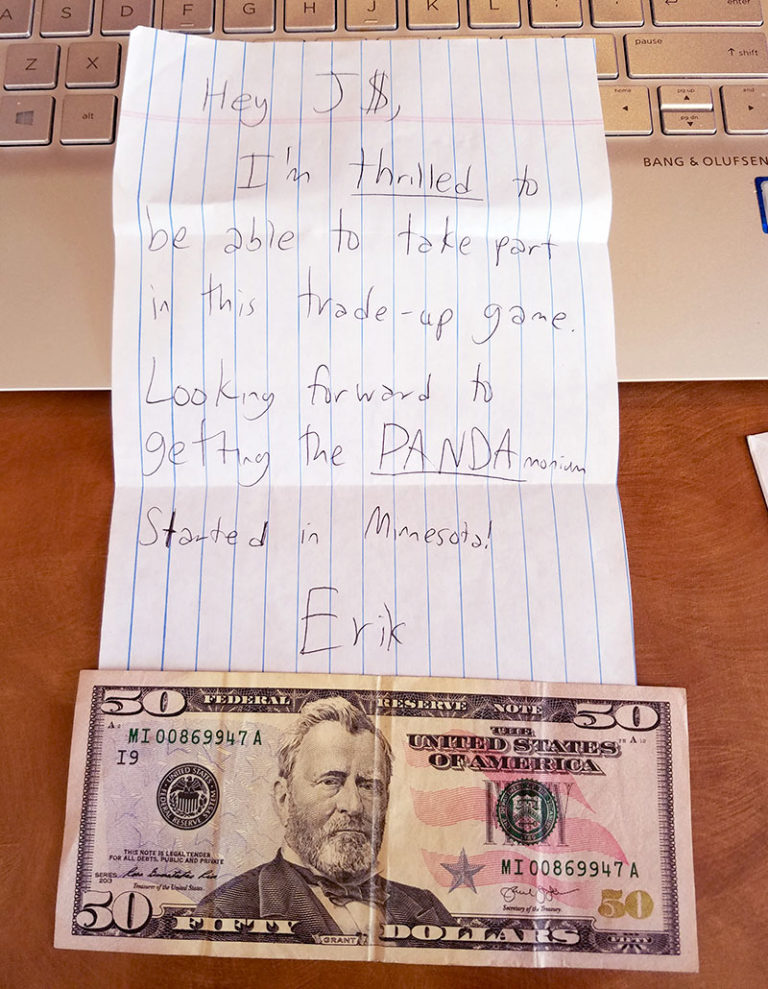 A S D F G H J K L : " enter
Z X pause ↑ shift
alt home pg up end
pg dn
BANG & OLUFSEN
Hey J$,
I'm thrilled to
be able to take part
in this trade-up game.
Looking forward to
getting the PANDAmonium
Started in Minnesota!
Erik
50 FEDERAL RESERVE NOTE 50
MI 00869947 A
I9
THE
UNITED STATES
OF AMERICA
UNITED STATES FEDERAL RESERVE SYSTEM
THIS NOTE IS LEGAL TENDER
FOR ALL DEBTS, PUBLIC AND PRIVATE
MI 00869947 A
SERIES
2013
Treasurer of the United States
Secretary of the Treasury
50 FIFTY GRANT DOLLARS 50